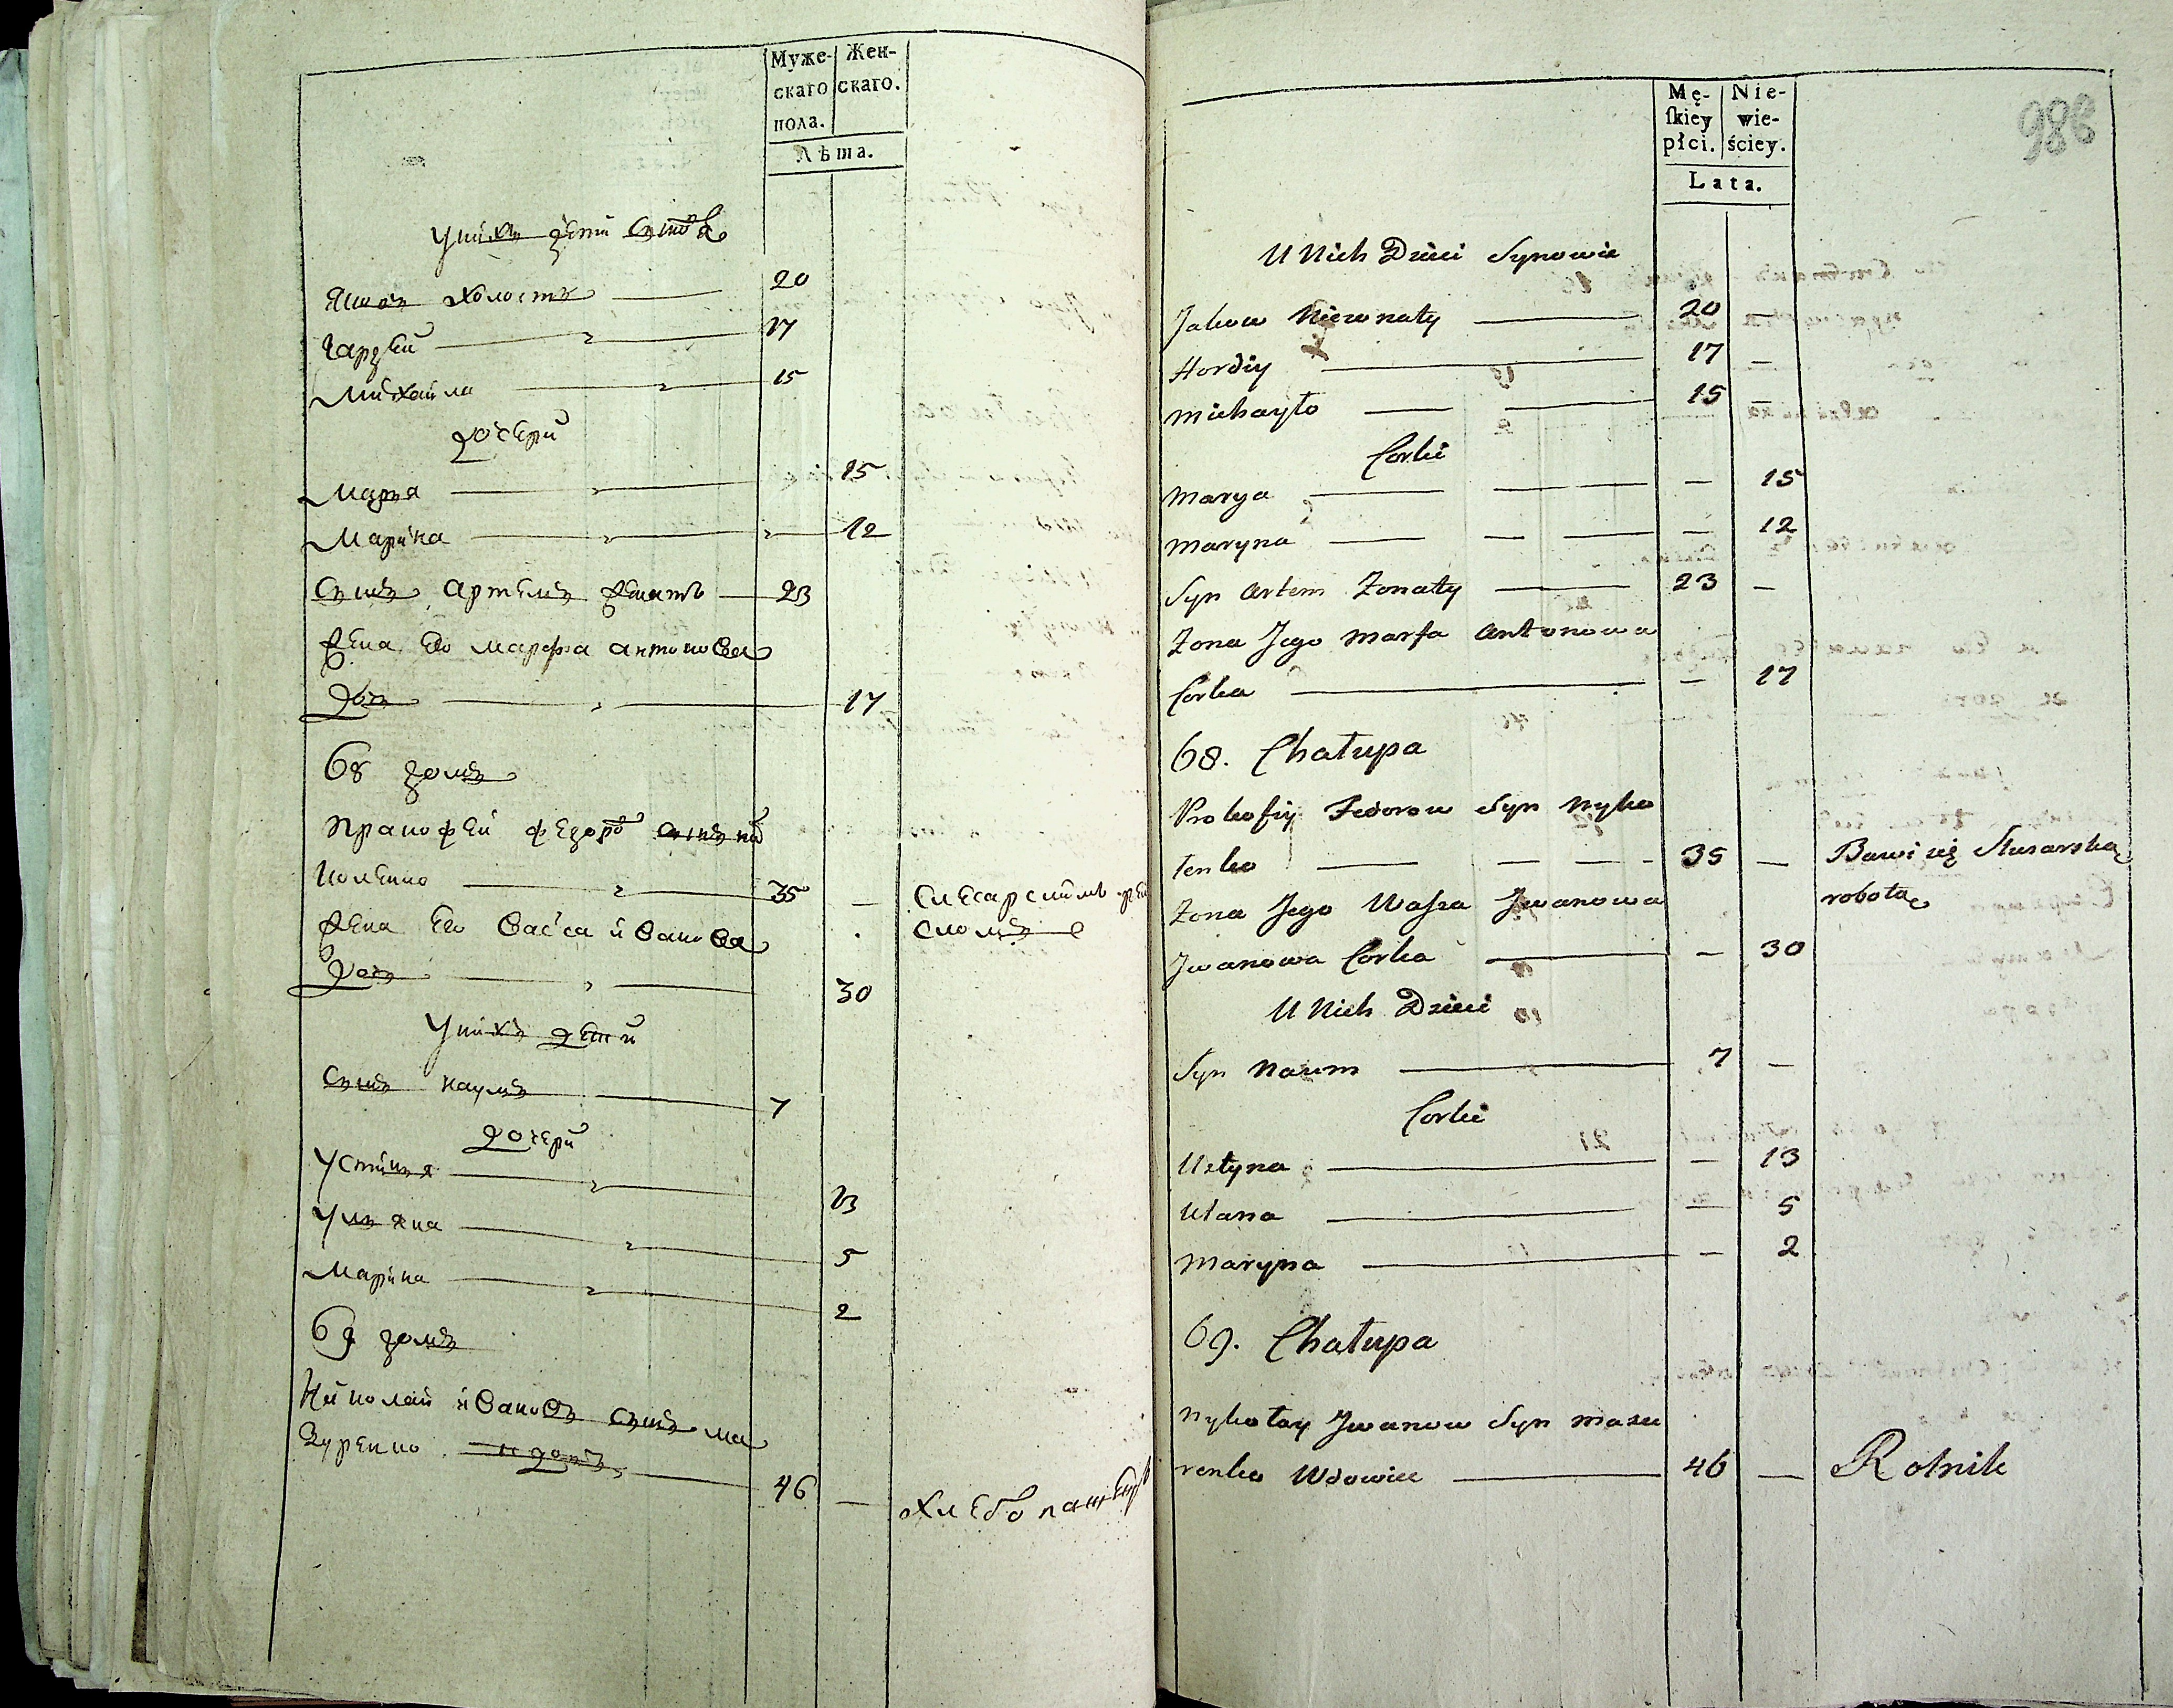 Муже-
скаго
пола.
Жен-
скаго.
Лѣта.
У нихъ дети Сыновя
Яковъ холостъ 20
Гардей 17
Михайла 15
дочери
Маря 15
Марина 12
Сынъ артемъ женатъ 23
жена Его марфа антонова
дочь 17
68 домъ
Пракофей федоровъ сынъ ни
коленко 35 — Слесарскимъ ре
жена Его Васса иванова
дочь 30
У нихъ детй
Сынъ наумъ 7
дочери
Устинья 13
Ульяна 5
Марина 2
69 домъ
Николай ивановъ сынъ ма
зуренко 46 —
Mę-
ſkiey
płci.
Nie-
wie-
ściey.
Lata.
988
U Nich Dzieci Synowie
Jakow Niezonaty 20 —
Hordiy 17 —
Michayło 15 —
Corki
Marya — 15
Maryna — 12
Syn Artem Zonaty 23 —
Zona Jego Marfa Antonowa
Corka — 17
68. Chałupa
Prokofiy Fedorow Syn Nyko
lenko 35 — Bawi się Slusarską
robotą
Zona Jego Wassa Jwanowa
Jwanowa Corka — 30
U Nich Dzieci
Syn Naum 7 —
Corki
Ustyna — 13
Ulana — 5
Maryna — 2
69. Chałupa
Nykołay Jwanow Syn Mazu
renko Wdowiec 46 — Rolnik